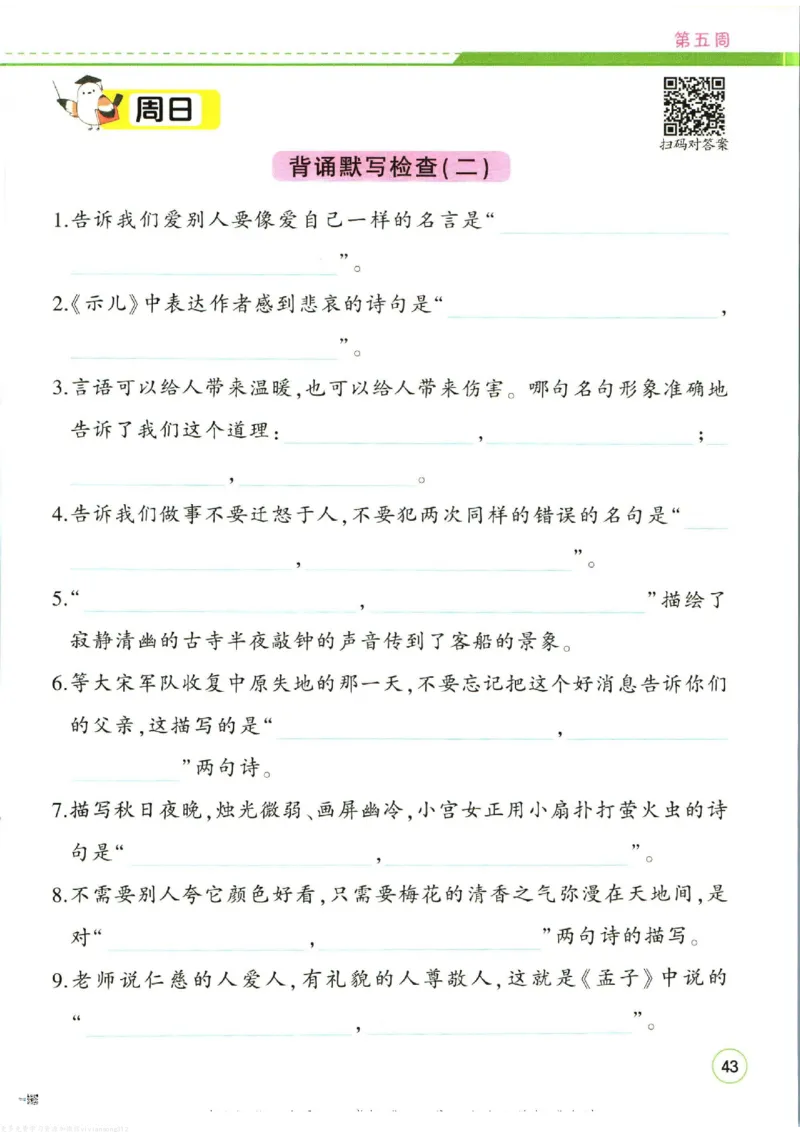 第五周
周日
扫码对答案
背诵默写检查(二)
1.告诉我们爱别人要像爱自己一样的名言是“
”。
2.《示儿》中表达作者感到悲哀的诗句是“ ，
”。
3.言语可以给人带来温暖,也可以给人带来伤害。哪句名句形象准确地
告诉了我们这个道理： ， ；
， 。
4.告诉我们做事不要迁怒于人,不要犯两次同样的错误的名句是“
， ”。
5.“ ， ”描绘了
寂静清幽的古寺半夜敲钟的声音传到了客船的景象。
6.等大宋军队收复中原失地的那一天,不要忘记把这个好消息告诉你们
的父亲,这描写的是“ ，
”两句诗。
7.描写秋日夜晚,烛光微弱、画屏幽冷,小宫女正用小扇扑打萤火虫的诗
句是“ ， ”。
8.不需要别人夸它颜色好看,只需要梅花的清香之气弥漫在天地间,是
对“ ， ”两句诗的描写。
9.老师说仁慈的人爱人,有礼貌的人尊敬人,这就是《孟子》中说的
“ ， ”。
43